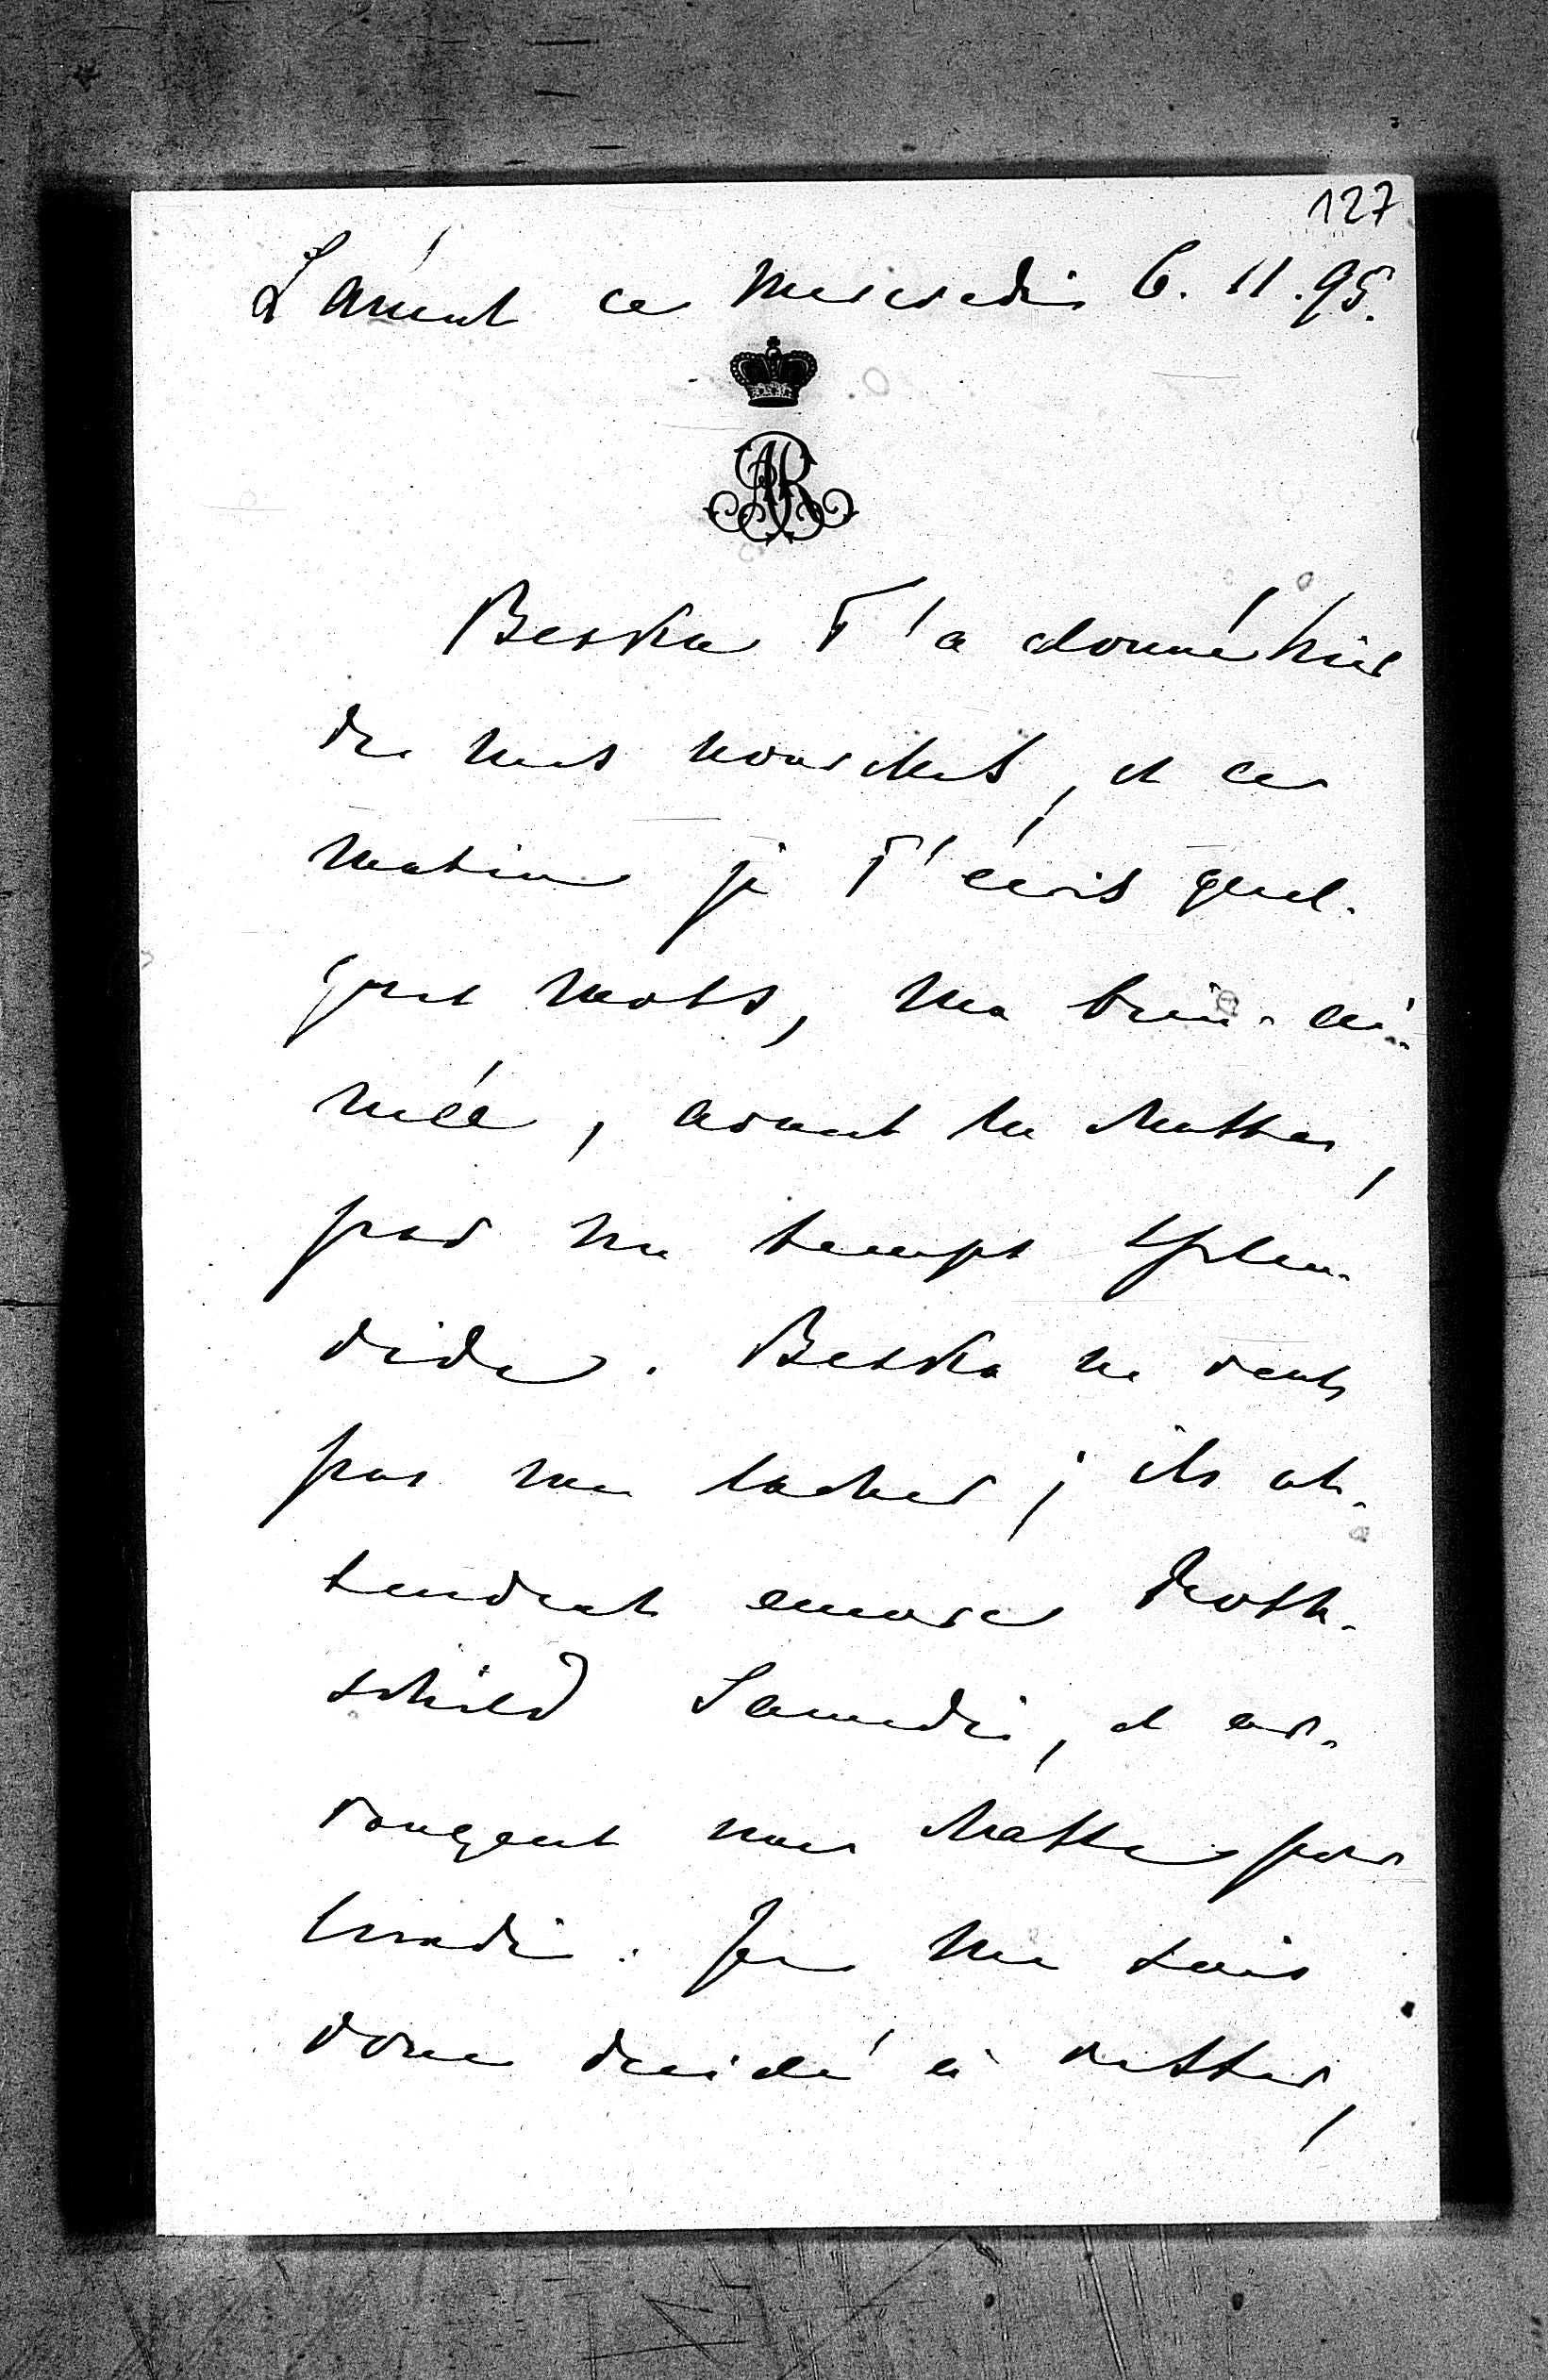 127
Lanÿent ce Mercredi 6.11.95.
AR
Beska T'a donné hier
de mes nouvelles, et ce
matin je T'écris quel-
ques mots, ma bien-ai-
mée, avant la chasse,
par un temps splen-
dide. Beska ne veut
pas me lacher; ils at-
tendent encore Roth-
schild Samedi, et ar-
rangent une chasse pour
lundi. Je me suis
donc decidé à rester,